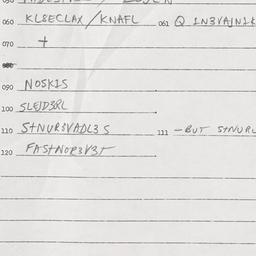 060 KLSECLAX/KNAFL 061 Q 1N3VAJN1K
070 +
090 NOSK1S
100 SLEJD3RL
110 S+NURSVADL3S 111 -BUT S+NURL
120 FAS+NOR3V3T